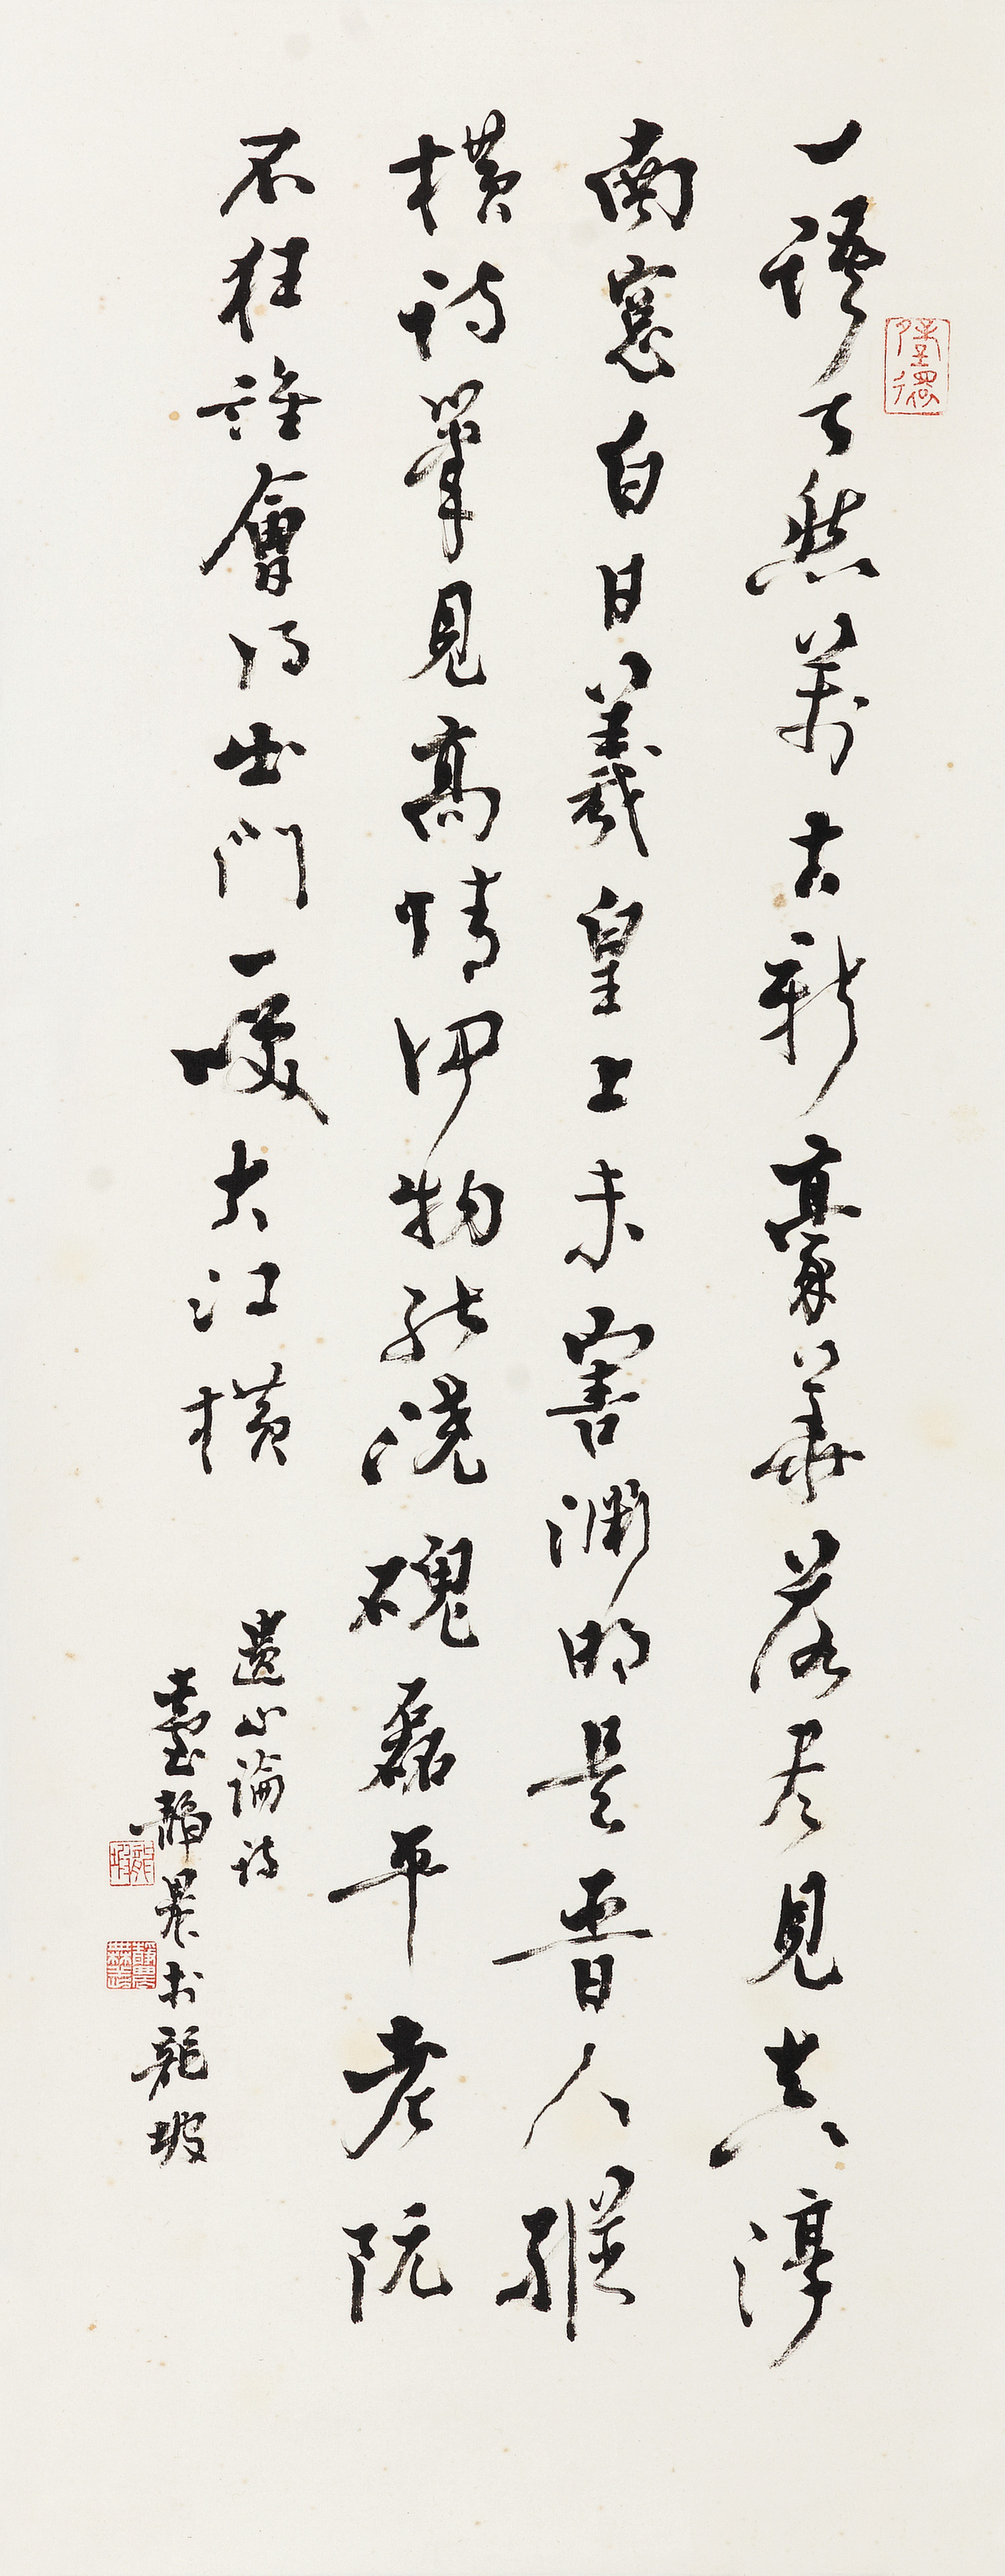 一語天然萬古新豪華落盡見真淳
南窻白日羲皇上未害淵明是晉人縱
橫詩筆見高情何物能澆磈磊平老阮
不狂誰會得出門一咲大江橫
遺山論詩
臺靜農於龍坡
龍坡
靜農無恙